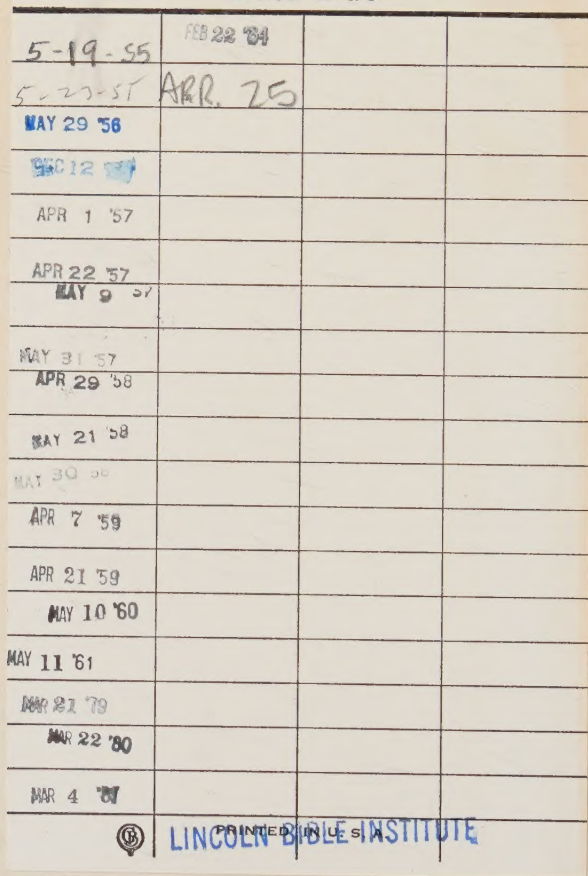 5-19-55
5-23-55
MAY 29 '56
DEC 12
APR 1 '57
APR 22 '57
MAY 9 57
MAY 31 '57
APR 29 '58
MAY 21 '58
MAY 30 58
APR 7 '59
APR 21 '59
MAY 10 '60
MAY 11 '61
MAR 21 '79
MAR 22 '80
MAR 4 '81
FEB 22 '84
APR. 25
PRINTED IN U. S. A.
LINCOLN BIBLE INSTITUTE